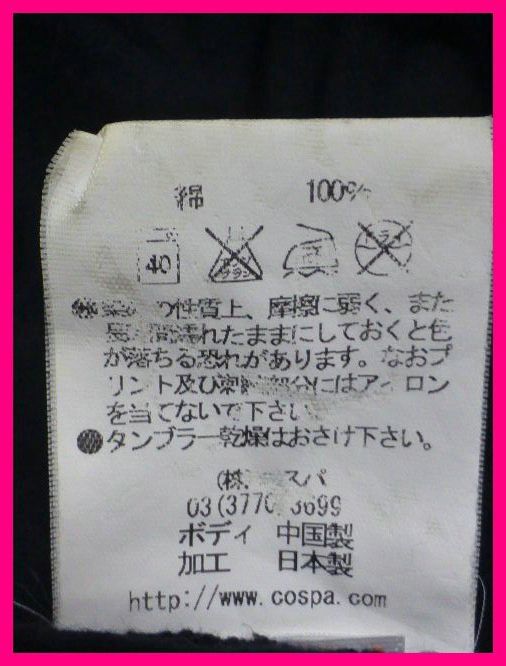 綿 100%
40
の性質上、摩擦に弱く、また
濡れたままにしておくと色
が落ちる恐れがあります。なおプ
リント及び刺 部分にはアイロン
を当てないで下さい
タンブラー乾燥はおさけ下さい。
(株 スパ
03(3770 3699
ボディ 中国製
加工 日本製
http://www.cospa.com